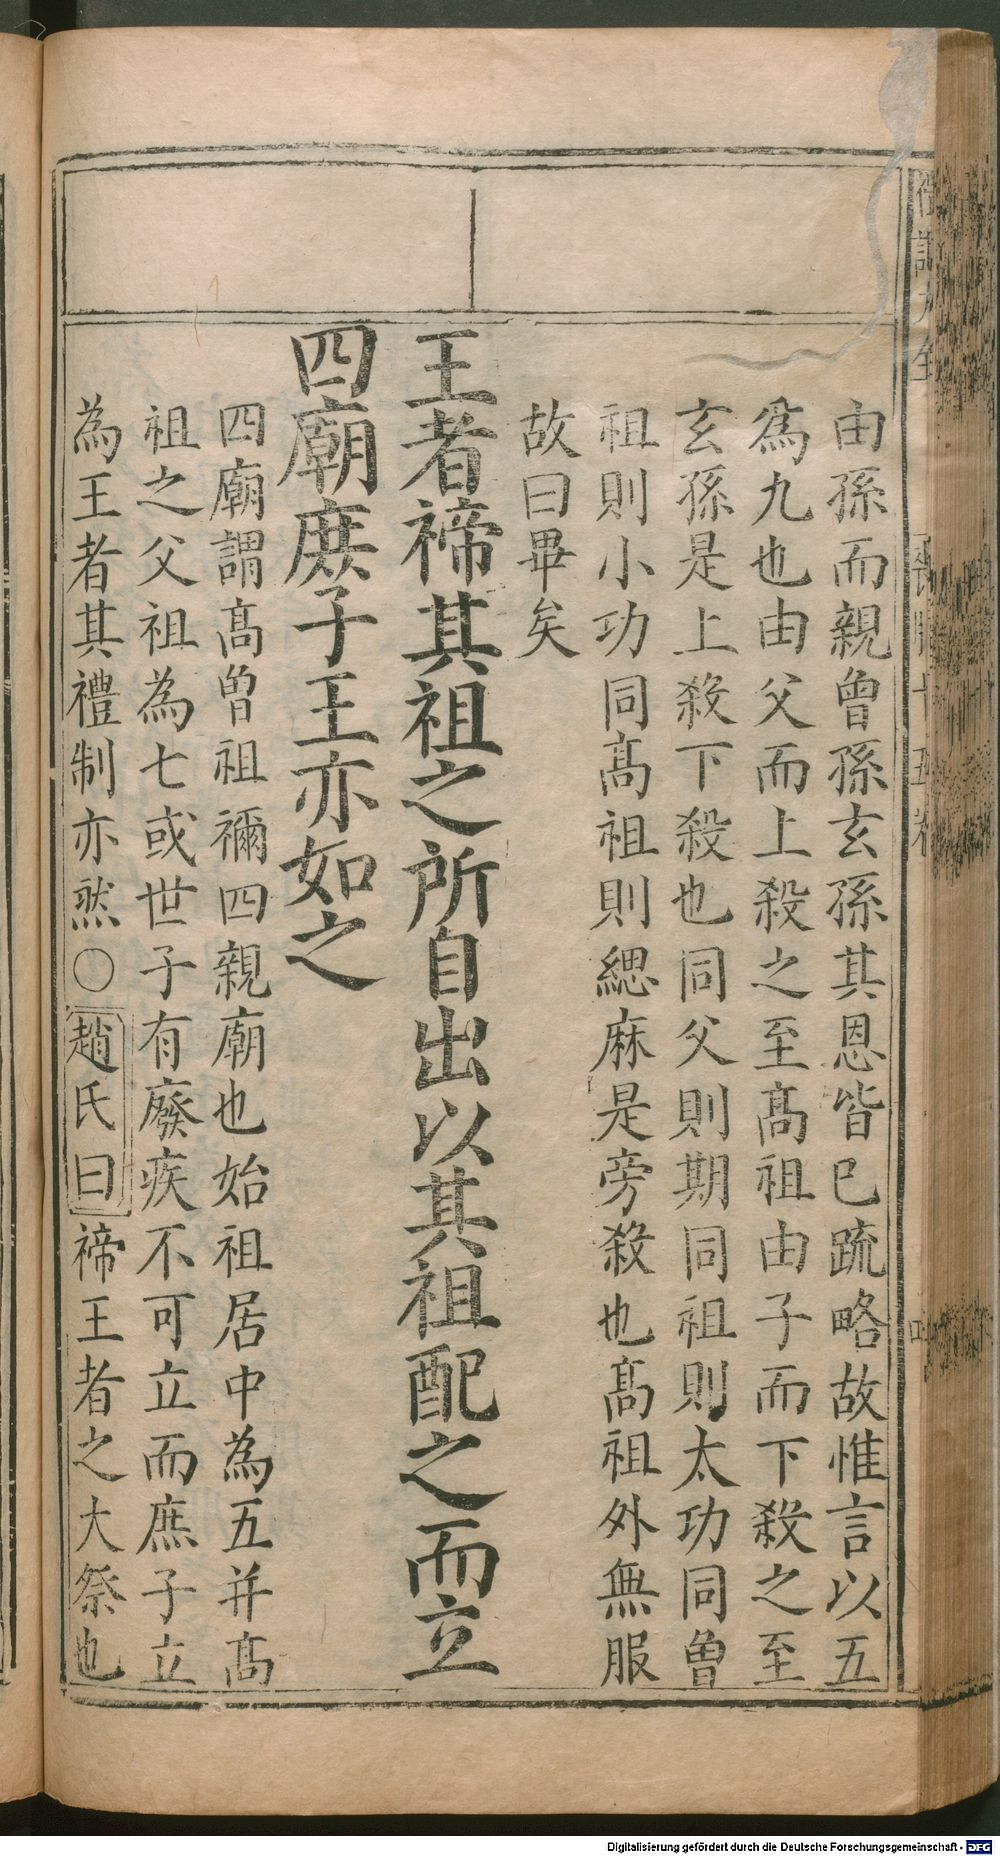 由孫而親曾孫玄孫其恩皆已疏略故惟言以五
爲九也由父而上殺之至髙祖由子而下殺之至
玄孫是上殺下殺也同父則期同祖則太功同曾
祖則小功同髙祖則緦麻是旁殺也髙祖外無服
故曰畢矣
王者禘其祖之所自出以其祖配之而立
四廟庶子王亦如之
四廟謂髙曾祖禰四親廟也始祖居中為五并髙
祖之父祖為七或世子有廢疾不可立而庶子立
為王者其禮制亦然〇趙氏曰禘王者之大祭也
Digitalisierung gefördert durch die Deutsche Forschungsgemeinschaft - DFG